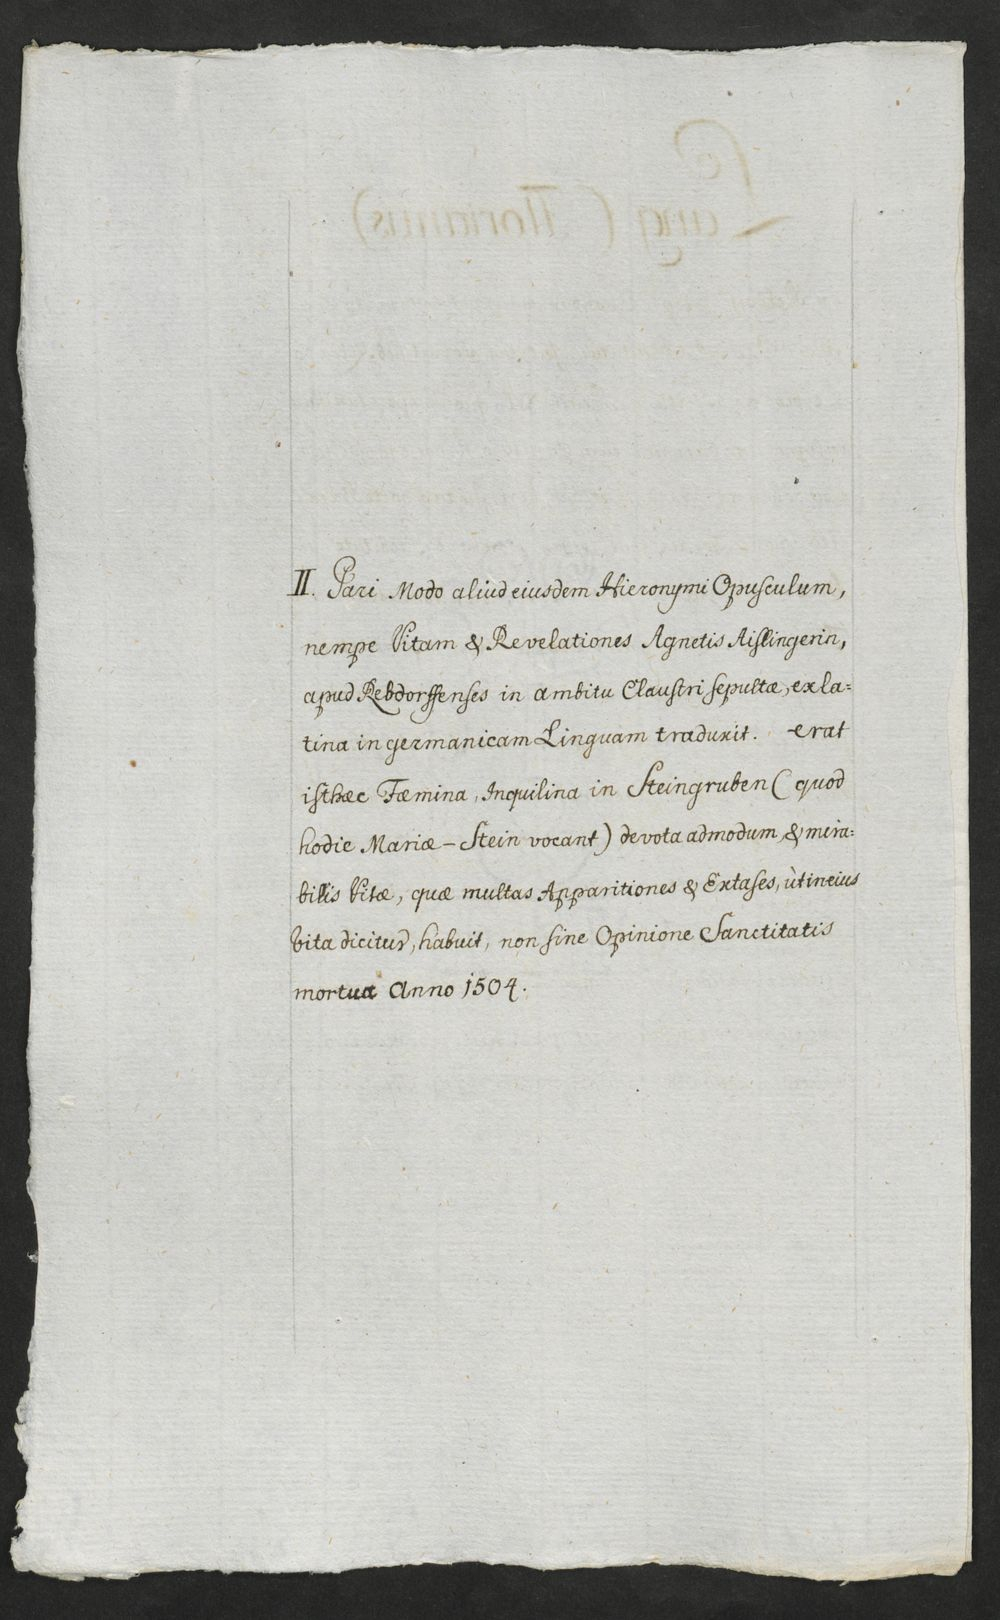 II. Pari Modo aliud eiusdem Hieronymi Opusculum,
nempe Vitam & Revelationes Agnetis Aislingerin,
apud Rebdorffenses in ambitu Claustri sepultæ, ex la=
tina in germanicam Linguam traduxit. erat
isthæc Fæmina, Inquilina in Steingruben ( quod
hodie Mariæ – Stein vocant ) devota admodum, & mira=
bilis Vitæ, quæ multas Apparitiones & Extases, ùti in eius
Vita dicitur, habuit, non sine Opinione Sanctitatis
mortua Anno 1504.